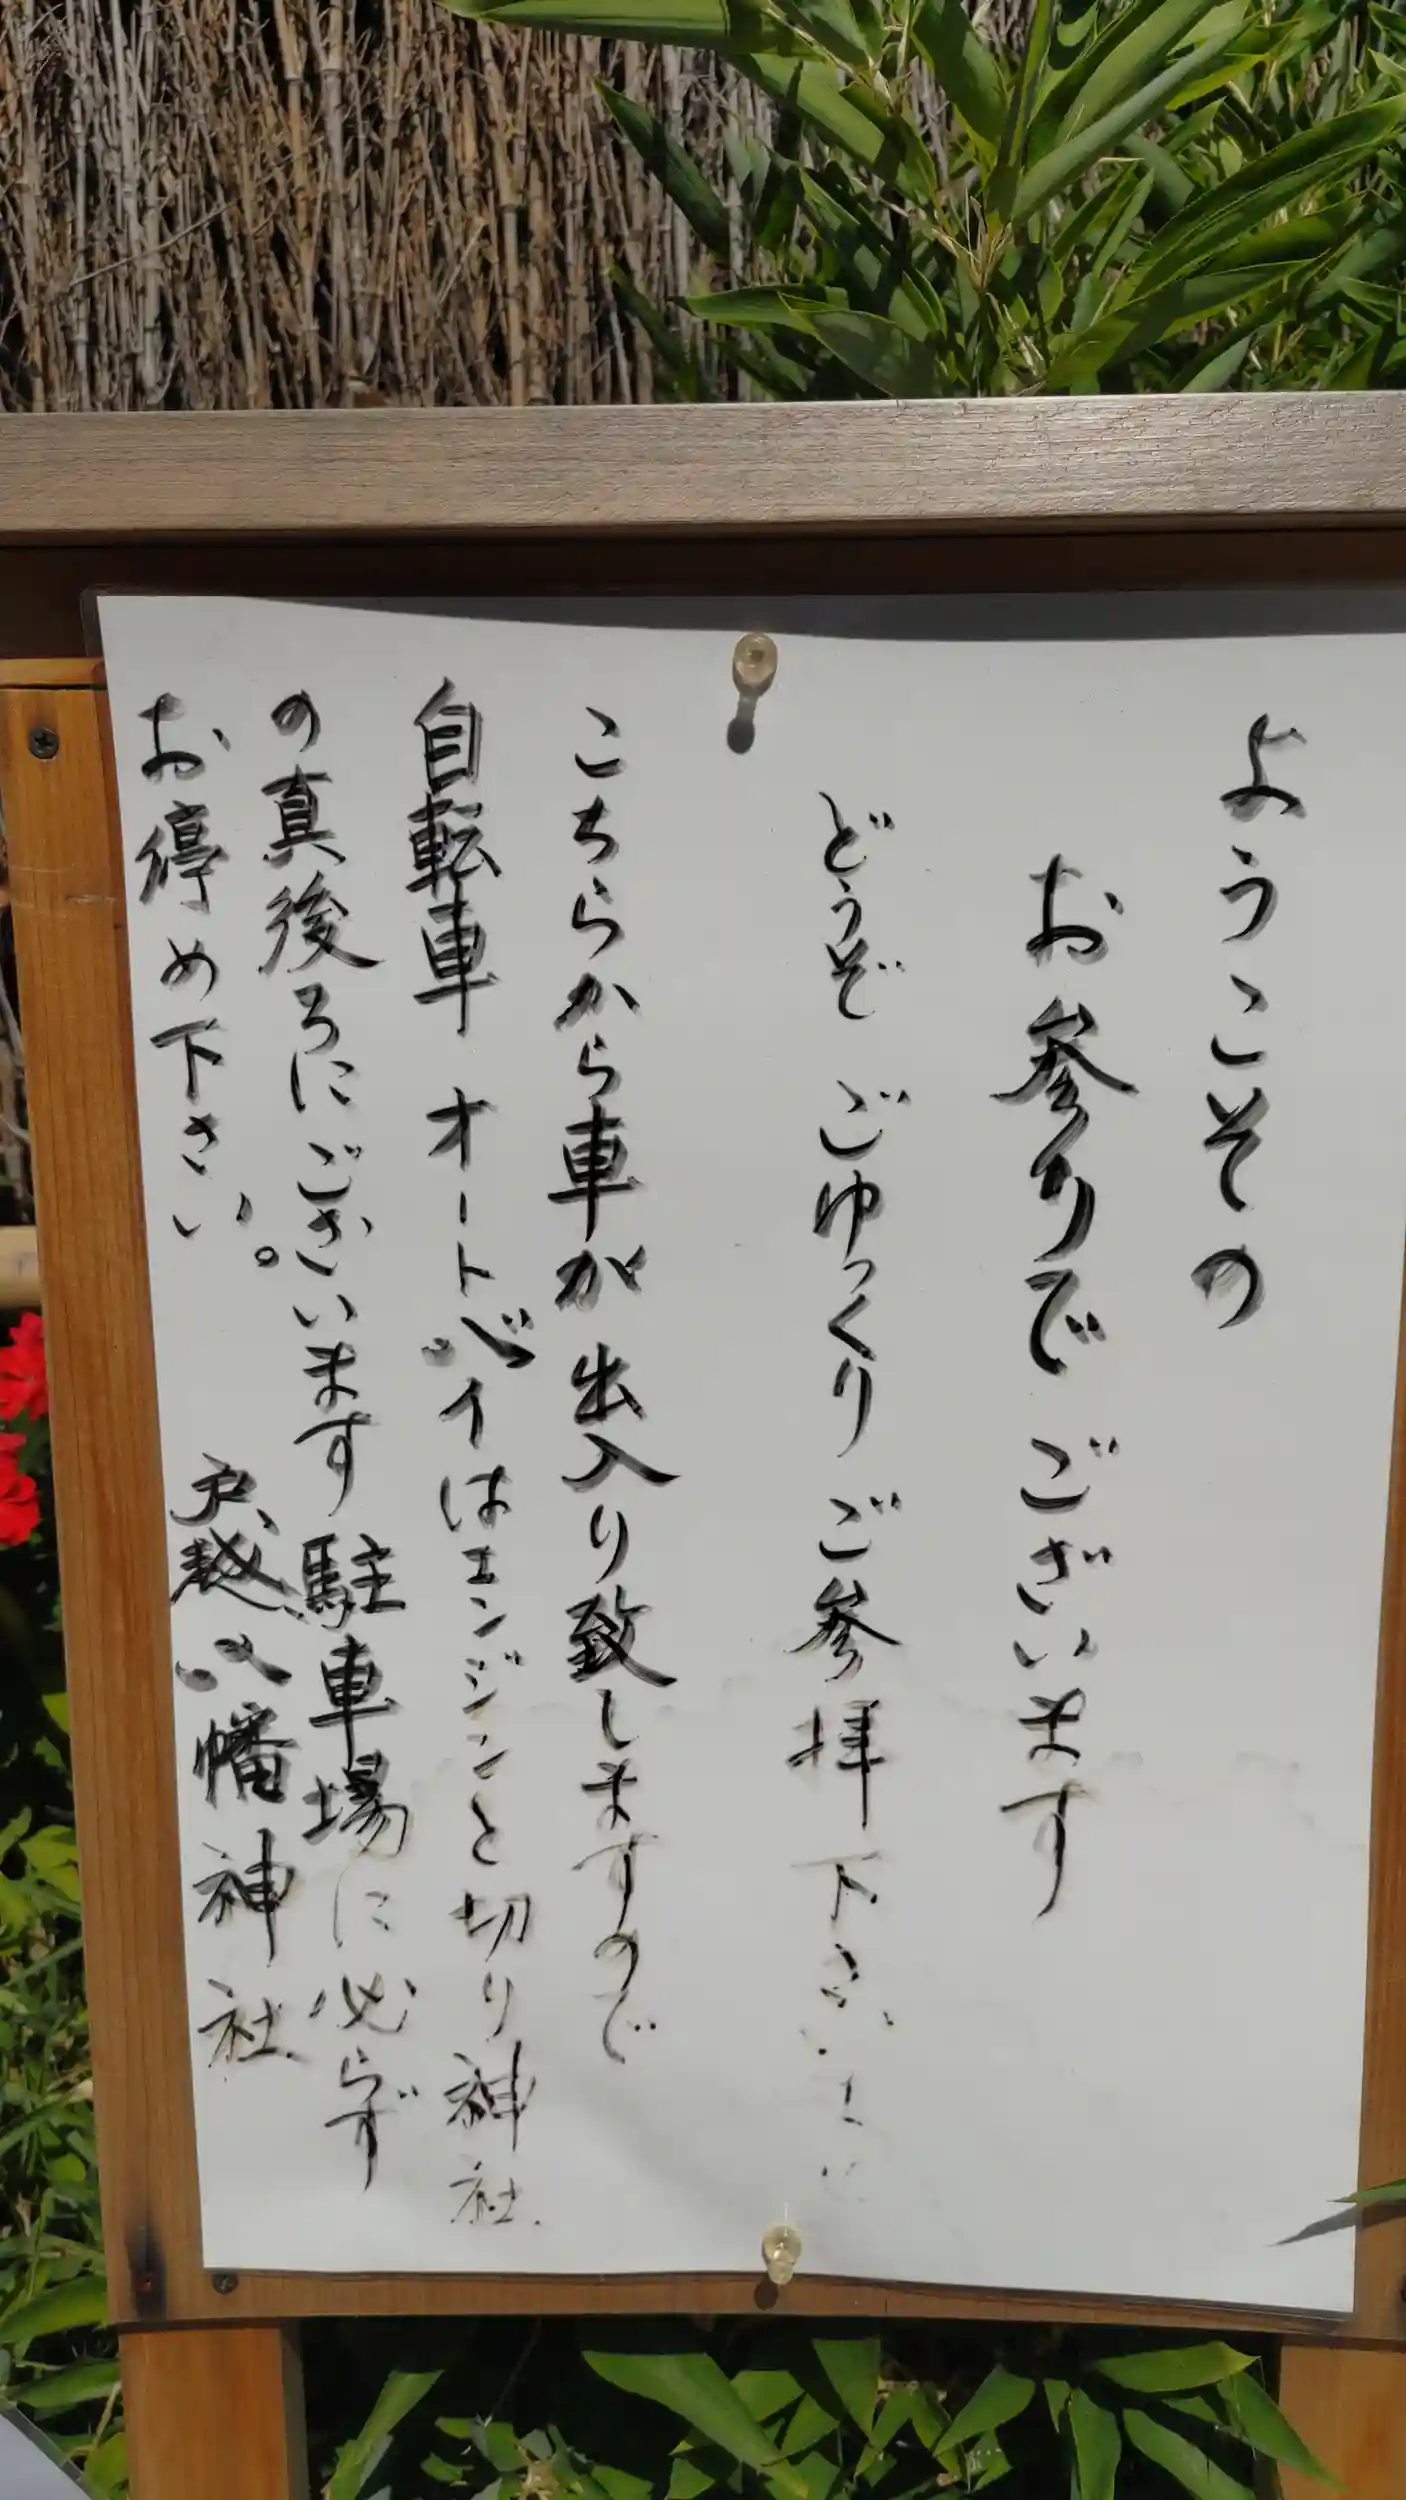 ようこその
お参りでございます
どうぞ ごゆっくり ご参拝下さいませ
こちらから車が出入り致しますので
自転車 オートバイはエンジンを切り神社
の真後ろにございます駐車場に必ず
お停め下さい。
戸越八幡神社